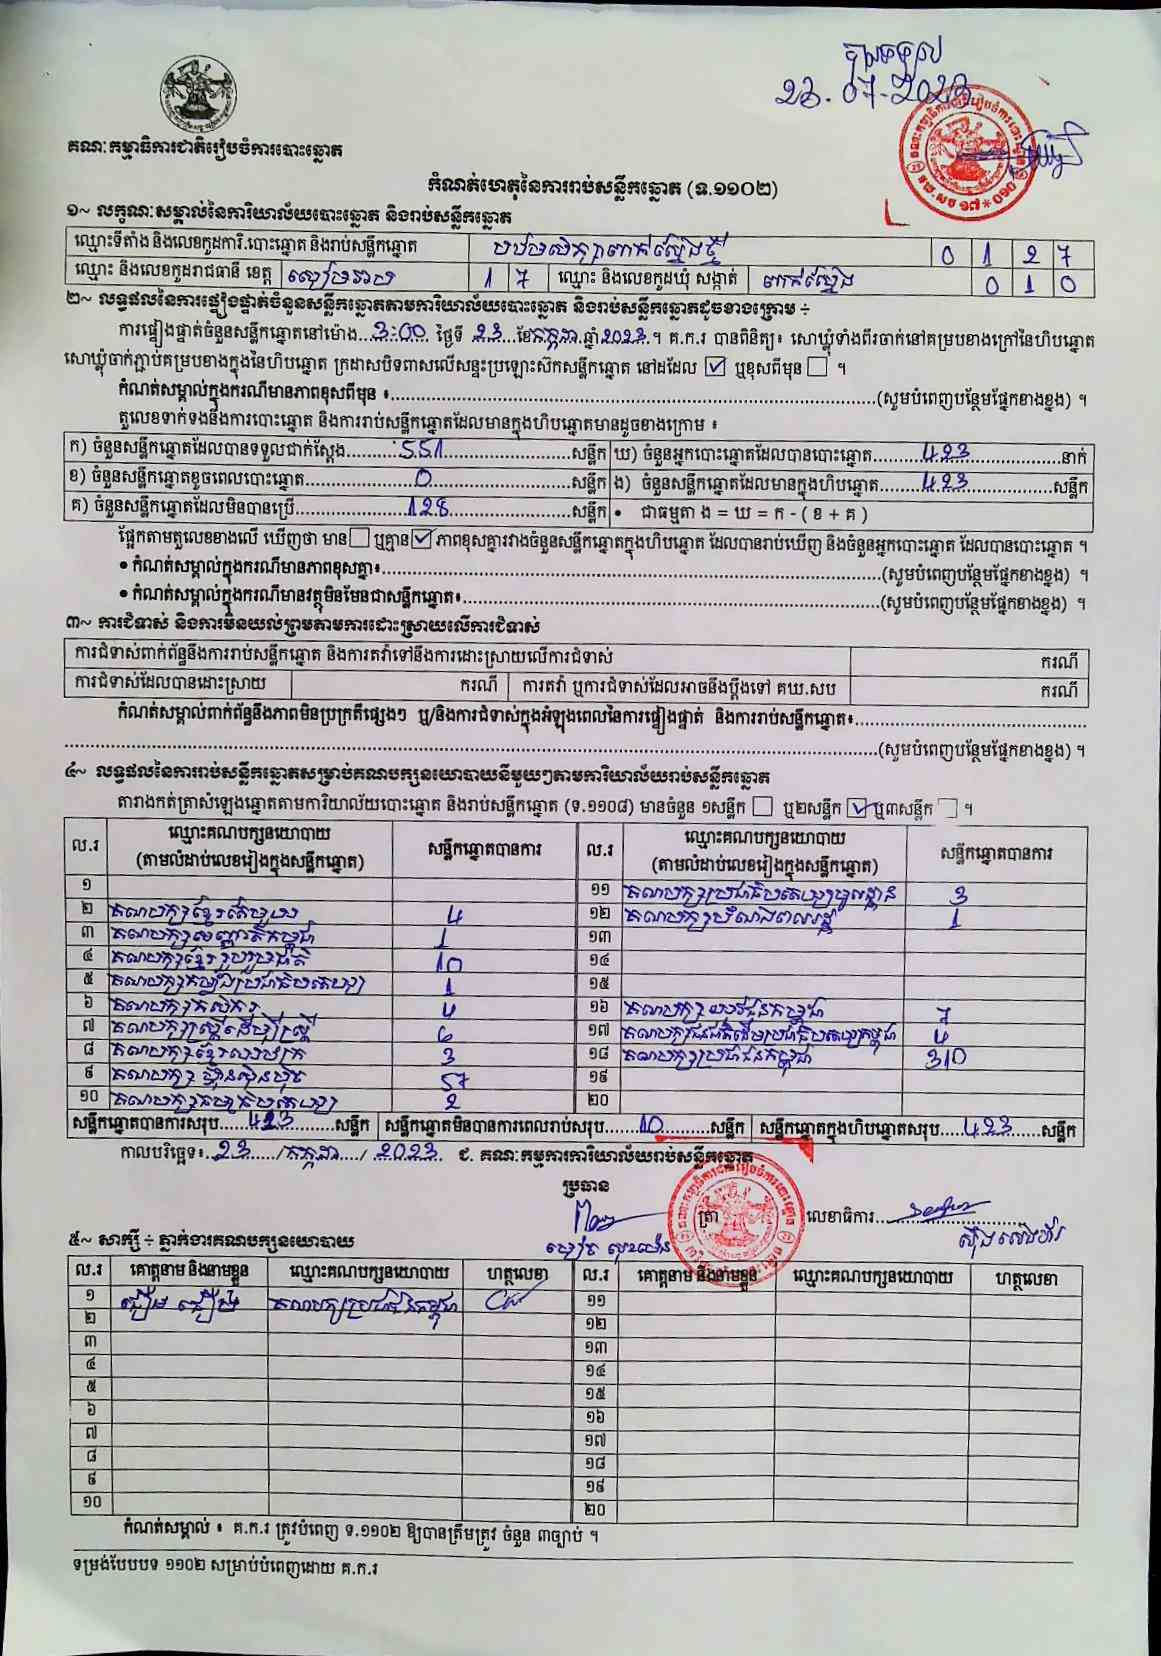 23.07-2023
គណៈកម្មាធិការជាតិរៀបចំការបោះឆ្នោត
កំណត់ហេតុនៃការរាប់សន្លឹកឆ្នោត (ទ.១១០២)
១~ លក្ខណៈសម្គាល់នៃការិយាល័យបោះឆ្នោត និងរាប់សន្លឹកឆ្នោត
ឈ្មោះទីតាំង និងលេខកូដការិ.បោះឆ្នោត និងរាប់សន្លឹកឆ្នោត 0 1 2 7
ឈ្មោះ និងលេខកូដរាជធានី ខេត្ត សៀមរាប 1 7 ឈ្មោះ និងលេខកូដឃុំ សង្កាត់ ពាក់ស្នែង 0 1 0
២~ លទ្ធផលនៃការផ្ទៀងផ្ទាត់ចំនួនសន្លឹកឆ្នោតតាមការិយាល័យបោះឆ្នោត និងរាប់សន្លឹកឆ្នោតដូចខាងក្រោម ÷
ការផ្ទៀងផ្ទាត់ចំនួនសន្លឹកឆ្នោតនៅម៉ោង...3:00 ថ្ងៃទី 23...ខែកក្កដា ឆ្នាំ2023.។ គ.ក.រ បានពិនិត្យ៖ សោឃ្លុំទាំងពីរចាក់នៅគម្របខាងក្រៅនៃហិបឆ្នោត
សោឃ្លុំចាក់ភ្ជាប់គម្របខាងក្នុងនៃហិបឆ្នោត ក្រដាសបិទពាសលើសន្ទះប្រឡោះស៊កសន្លឹកឆ្នោត នៅដដែល ☑ ឬខុសពីមុន ☐ ។
កំណត់សម្គាល់ក្នុងករណីមានភាពខុសពីមុន ៖...(សូមបំពេញបន្ថែមផ្នែកខាងខ្នង) ។
តួលេខទាក់ទងនឹងការបោះឆ្នោត និងការរាប់សន្លឹកឆ្នោតដែលមានក្នុងហិបឆ្នោតមានដូចខាងក្រោម ៖
ក) ចំនួនសន្លឹកឆ្នោតដែលបានទទួលជាក់ស្តែង...551...សន្លឹក ឃ) ចំនួនអ្នកបោះឆ្នោតដែលបានបោះឆ្នោត...423...នាក់
ខ) ចំនួនសន្លឹកឆ្នោតខូចពេលបោះឆ្នោត...0...សន្លឹក ង) ចំនួនសន្លឹកឆ្នោតដែលមានក្នុងហិបឆ្នោត...423...សន្លឹក
គ) ចំនួនសន្លឹកឆ្នោតដែលមិនបានប្រើ...128...សន្លឹក • ជាធម្មតា ង = ឃ = ក - ( ខ + គ )
ផ្អែកតាមតួលេខខាងលើ ឃើញថា មាន ☐ ឬគ្មាន ☑ ភាពខុសគ្នារវាងចំនួនសន្លឹកឆ្នោតក្នុងហិបឆ្នោត ដែលបានរាប់ឃើញ និងចំនួនអ្នកបោះឆ្នោត ដែលបានបោះឆ្នោត ។
• កំណត់សម្គាល់ក្នុងករណីមានភាពខុសគ្នា៖...(សូមបំពេញបន្ថែមផ្នែកខាងខ្នង) ។
• កំណត់សម្គាល់ក្នុងករណីមានវត្ថុមិនមែនជាសន្លឹកឆ្នោត៖...(សូមបំពេញបន្ថែមផ្នែកខាងខ្នង) ។
៣~ ការជំទាស់ និងការមិនយល់ព្រមតាមការដោះស្រាយលើការជំទាស់
ការជំទាស់ពាក់ព័ន្ធនឹងការរាប់សន្លឹកឆ្នោត និងការតវ៉ាទៅនឹងការដោះស្រាយលើការជំទាស់ ករណី
ការជំទាស់ដែលបានដោះស្រាយ ករណី ការតវ៉ា ឬការជំទាស់ដែលអាចនឹងប្តឹងទៅ គឃ.សប ករណី
កំណត់សម្គាល់ពាក់ព័ន្ធនឹងភាពមិនប្រក្រតីផ្សេងៗ ឬ/និងការជំទាស់ក្នុងអំឡុងពេលនៃការផ្ទៀងផ្ទាត់ និងការរាប់សន្លឹកឆ្នោត៖...
...(សូមបំពេញបន្ថែមផ្នែកខាងខ្នង) ។
៤~ លទ្ធផលនៃការរាប់សន្លឹកឆ្នោតសម្រាប់គណបក្សនយោបាយនីមួយៗតាមការិយាល័យរាប់សន្លឹកឆ្នោត
តារាងកត់ត្រាសំឡេងឆ្នោតតាមការិយាល័យបោះឆ្នោត និងរាប់សន្លឹកឆ្នោត (ទ.១១០៨) មានចំនួន ១សន្លឹក ☐ ឬ២សន្លឹក ☑ ឬ៣សន្លឹក ☐ ។
ល.រ ឈ្មោះគណបក្សនយោបាយ (តាមលំដាប់លេខរៀងក្នុងសន្លឹកឆ្នោត) សន្លឹកឆ្នោតបានការ ល.រ ឈ្មោះគណបក្សនយោបាយ (តាមលំដាប់លេខរៀងក្នុងសន្លឹកឆ្នោត) សន្លឹកឆ្នោតបានការ
១ ១១ គណបក្សប្រជាធិបតេយ្យមូលដ្ឋាន 3
២ គណបក្សខ្មែរតែមួយ 4 ១២ 1
៣ គណបក្សសញ្ជាតិកម្ពុជា 1 ១៣
៤ គណបក្សខ្មែររួបរួមជាតិ 10 ១៤
៥ គណបក្សកម្លាំងប្រជាធិបតេយ្យ 1 ១៥
៦ គណបក្សកសិករ 4 ១៦ គណបក្សយុវជនកម្ពុជា 7
៧ គណបក្សស្ត្រីដើម្បីស្ត្រី 6 ១៧ គណបក្សជនជាតិដើមប្រជាធិបតេយ្យកម្ពុជា 4
៨ គណបក្សខ្មែរឈប់ក្រ 3 ១៨ គណបក្សប្រជាជនកម្ពុជា 310
៩ គណបក្សហ៊្វុនស៊ិនប៉ិច 57 ១៩
១០ គណបក្សធម្មាធិបតេយ្យ 2 ២០
សន្លឹកឆ្នោតបានការសរុប...423...សន្លឹក សន្លឹកឆ្នោតមិនបានការពេលរាប់សរុប...10...សន្លឹក សន្លឹកឆ្នោតក្នុងហិបឆ្នោតសរុប...423...សន្លឹក
កាលបរិច្ឆេទ៖...23.../កក្កដា.../ 2023. ជ. គណៈកម្មការការិយាល័យរាប់សន្លឹកឆ្នោត
ប្រធាន
ត្រា លេខាធិការ...
៥~ សាក្សី ÷ ភ្នាក់ងារគណបក្សនយោបាយ
ល.រ គោត្តនាម និងនាមខ្លួន ឈ្មោះគណបក្សនយោបាយ ហត្ថលេខា ល.រ គោត្តនាម និងនាមខ្លួន ឈ្មោះគណបក្សនយោបាយ ហត្ថលេខា
១ គណបក្សប្រជាជនកម្ពុជា ១១
២ ១២
៣ ១៣
៤ ១៤
៥ ១៥
៦ ១៦
៧ ១៧
៨ ១៨
៩ ១៩
១០ ២០
កំណត់សម្គាល់ ៖ គ.ក.រ ត្រូវបំពេញ ទ.១១០២ ឱ្យបានត្រឹមត្រូវ ចំនួន ៣ច្បាប់ ។
ទម្រង់បែបបទ ១១០២ សម្រាប់បំពេញដោយ គ.ក.រ